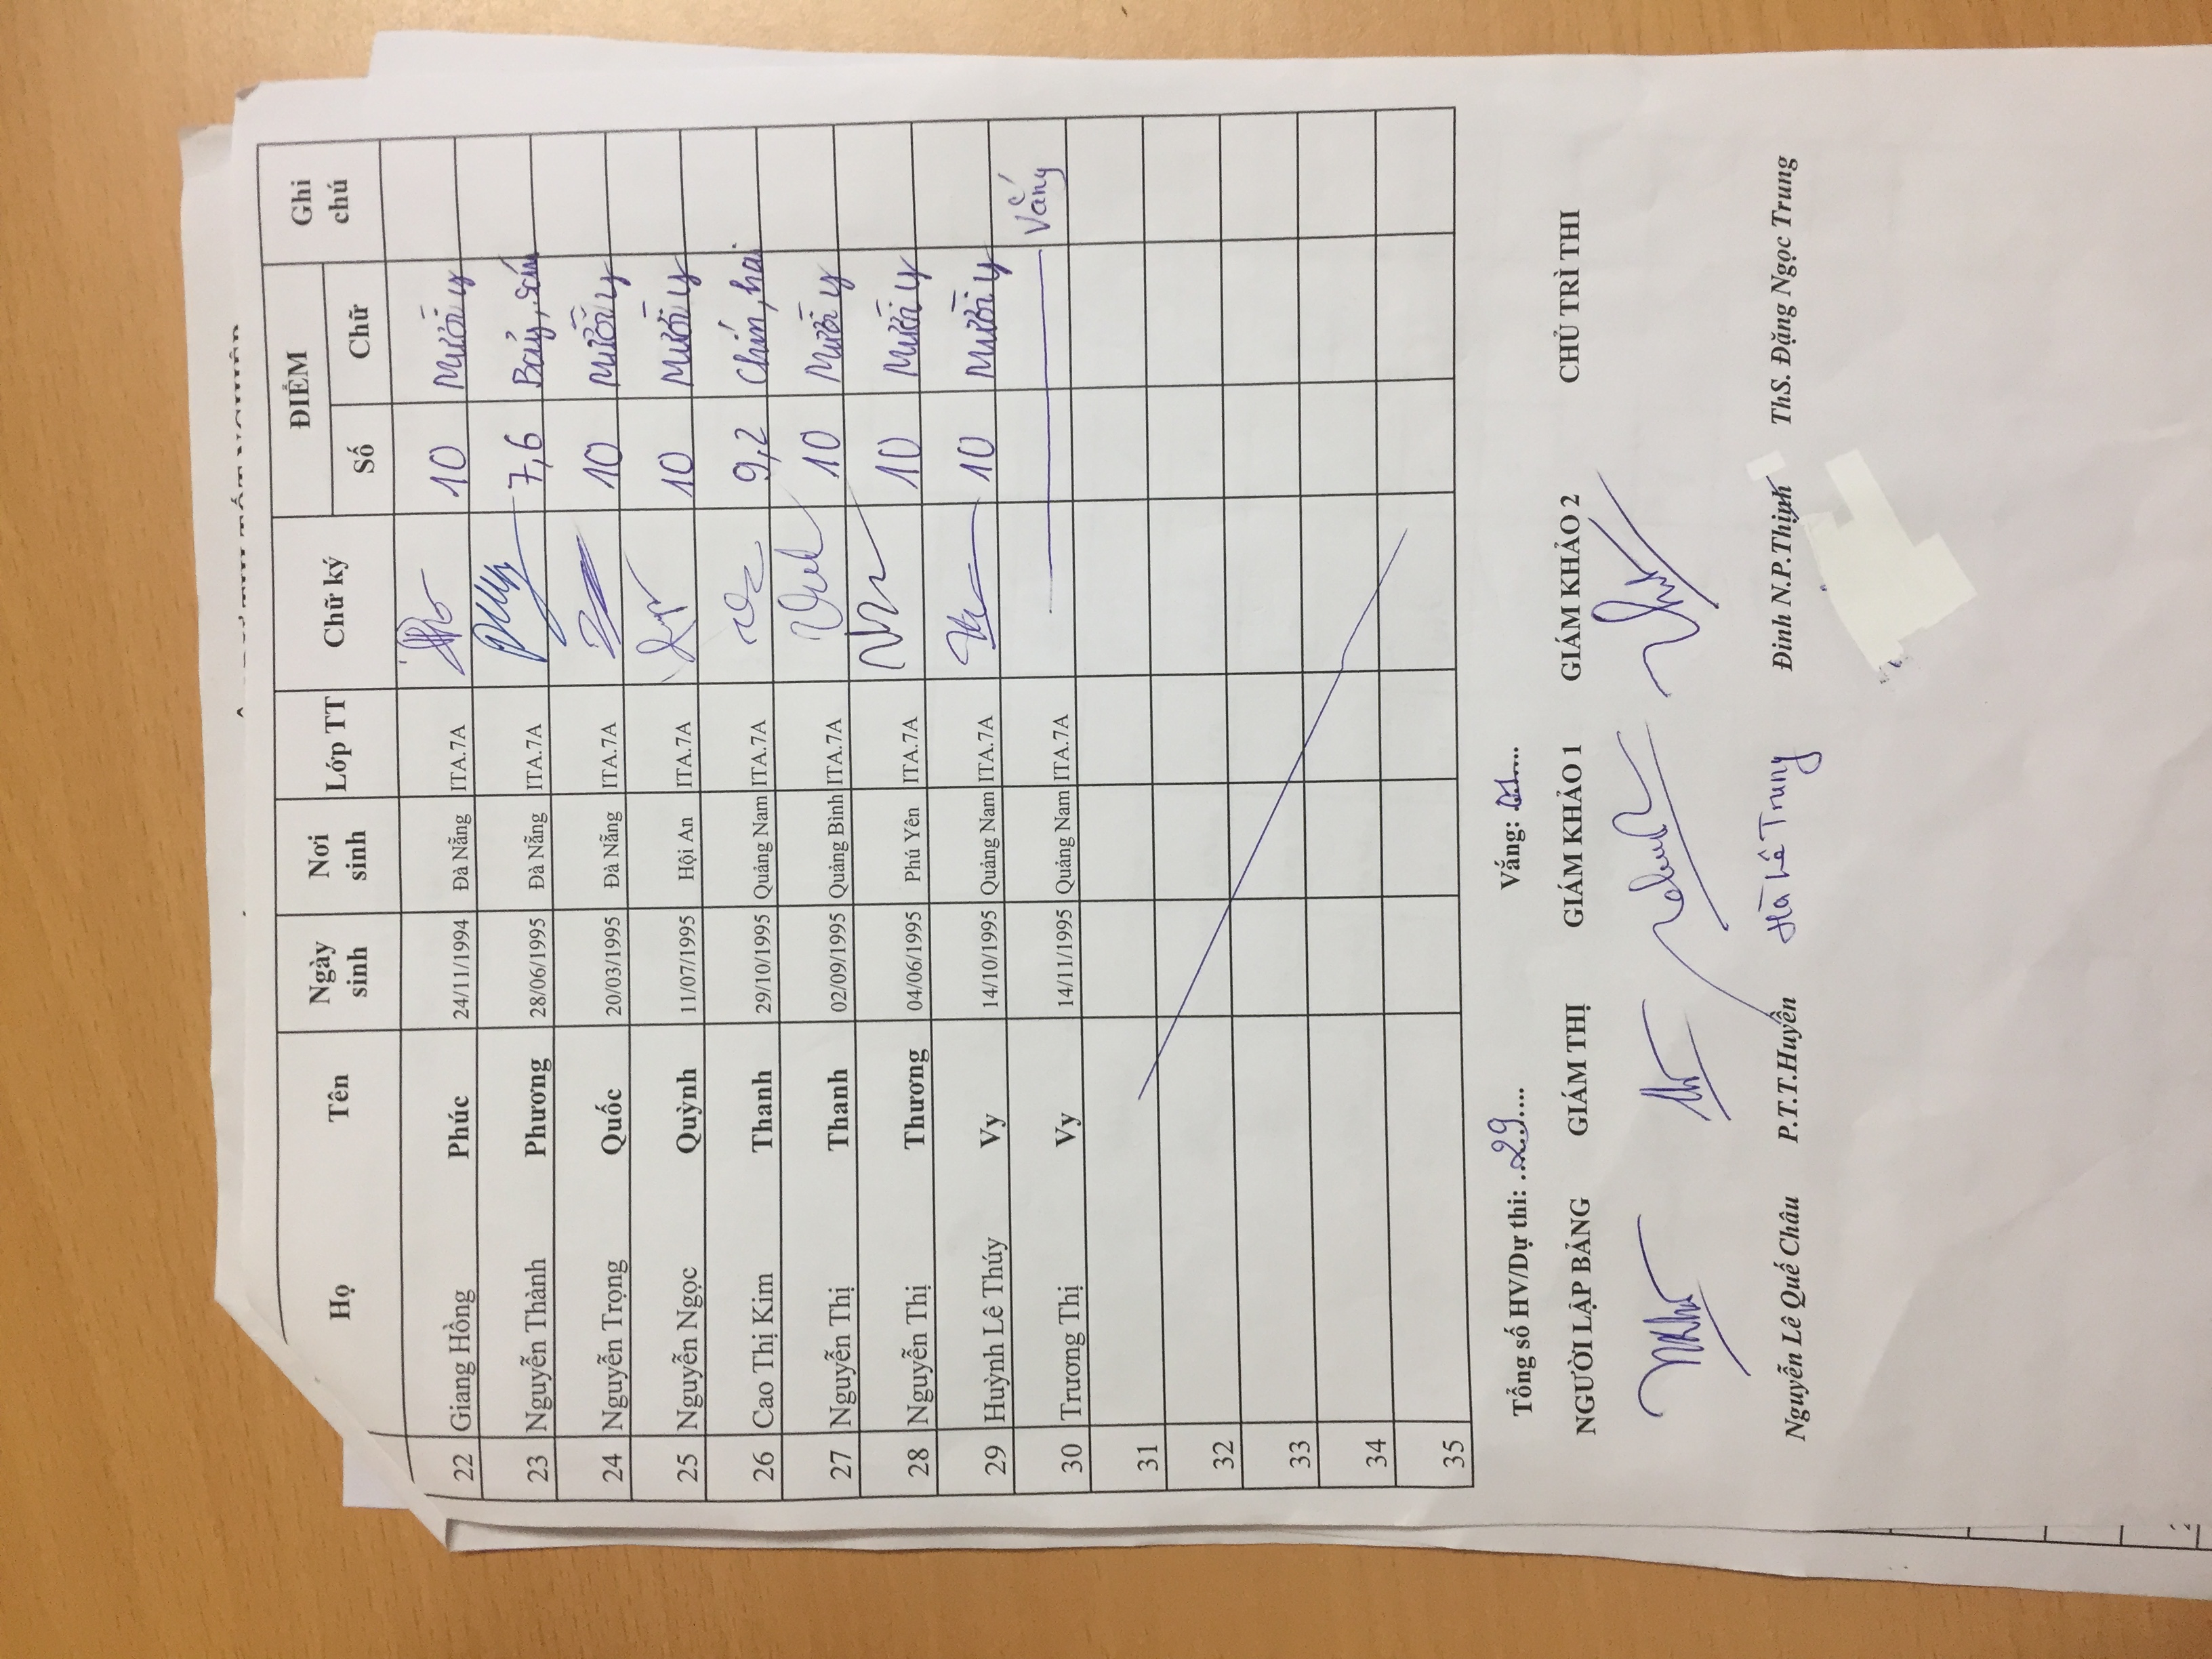 Họ Tên Ngày sinh Nơi sinh Lớp TT Chữ ký ĐIỂM Số Chữ Ghi chú
22 Giang Hồng Phúc 24/11/1994 Đà Nẵng ITA.7A 10 Mười y
23 Nguyễn Thành Phương 28/06/1995 Đà Nẵng ITA.7A 7,6 Bảy, sáu
24 Nguyễn Trọng Quốc 20/03/1995 Đà Nẵng ITA.7A 10 Mười y
25 Nguyễn Ngọc Quỳnh 11/07/1995 Hội An ITA.7A 10 Mười y
26 Cao Thị Kim Thanh 29/10/1995 Quảng Nam ITA.7A 9,2 Chín, hai
27 Nguyễn Thị Thanh 02/09/1995 Quảng Bình ITA.7A 10 Mười y
28 Nguyễn Thị Thương 04/06/1995 Phú Yên ITA.7A 10 Mười y
29 Huỳnh Lê Thúy Vy 14/10/1995 Quảng Nam ITA.7A 10 Mười y
30 Trương Thị Vy 14/11/1995 Quảng Nam ITA.7A Vắng
31
32
33
34
35
Tổng số HV/Dự thi: ..29.... Vắng: 01....
NGƯỜI LẬP BẢNG GIÁM THỊ GIÁM KHẢO 1 GIÁM KHẢO 2 CHỦ TRÌ THI
Nguyễn Lê Quế Châu P.T.T.Huyền Hà Lê Trung Đinh N.P.Thịnh ThS. Đặng Ngọc Trung